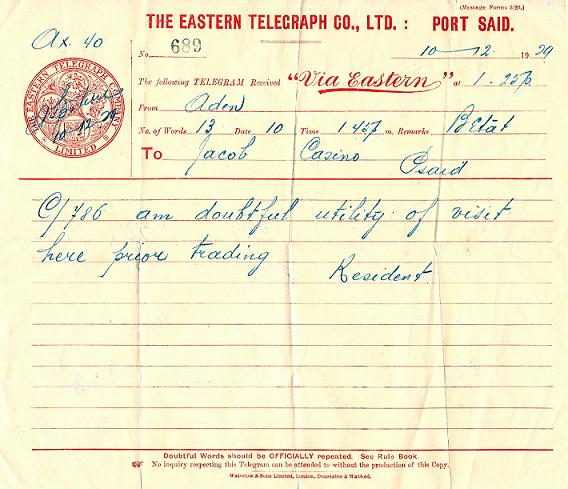 (Message Forms 5/28.)
THE EASTERN TELEGRAPH CO., LTD. : PORT SAID.
Ax. 40
No. 689
10 — 12. 1929
The following TELEGRAM Received "Via Eastern" at 1.25 p.
THE EASTERN TELEGRAPH COMPANY LIMITED
10.12.29
From Aden
No. of Words 13 Date 10 Time 1457 m. Remarks Betat
To Jacob Casino Psaid
C/786 am doubtful utility of visit
here prior trading
Resident.
Doubtful Words should be OFFICIALLY repeated. See Rule Book.
No inquiry respecting this Telegram can be attended to without the production of this Copy.
Waterlow & Sons Limited, London, Dunstable & Watford.